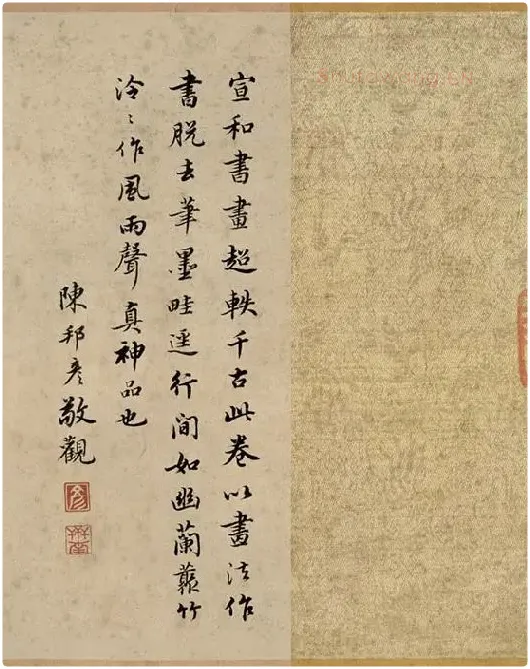 宣和書畫超軼千古此卷以畫法作
書脫去筆墨畦逕行間如幽蘭叢竹
泠〻作風雨聲真神品也
陳邦彦敬觀